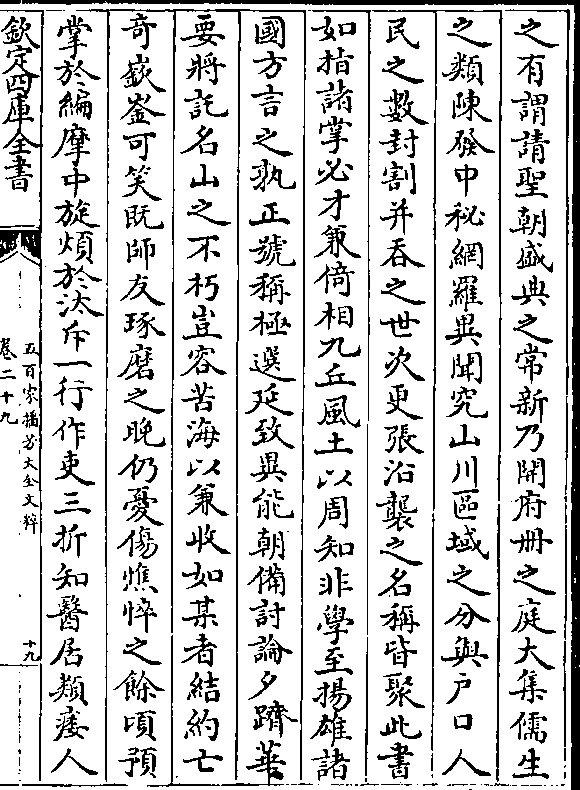 之有謂請聖朝盛典之常新乃開府冊之庭大集儒生
之類陳發中秘網羅異聞究山川區域之分與戸口人
民之數封割并吞之世次更張沿襲之名稱皆聚此書
如指諸掌必才兼倚相九丘風土以周知非學至揚雄諸
國方言之孰正號稱極選延致異能朝備討論夕躋華
要將託名山之不朽豈容苦海以兼收如某者結約亡
奇嶔崟可笑既師友琢磨之晚仍憂傷憔悴之餘頃預
掌於編摩中旋煩於汰斥一行作吏三折知醫居類痿人
欽定四庫全書
五百家播芳大全文粹
卷二十九
十九